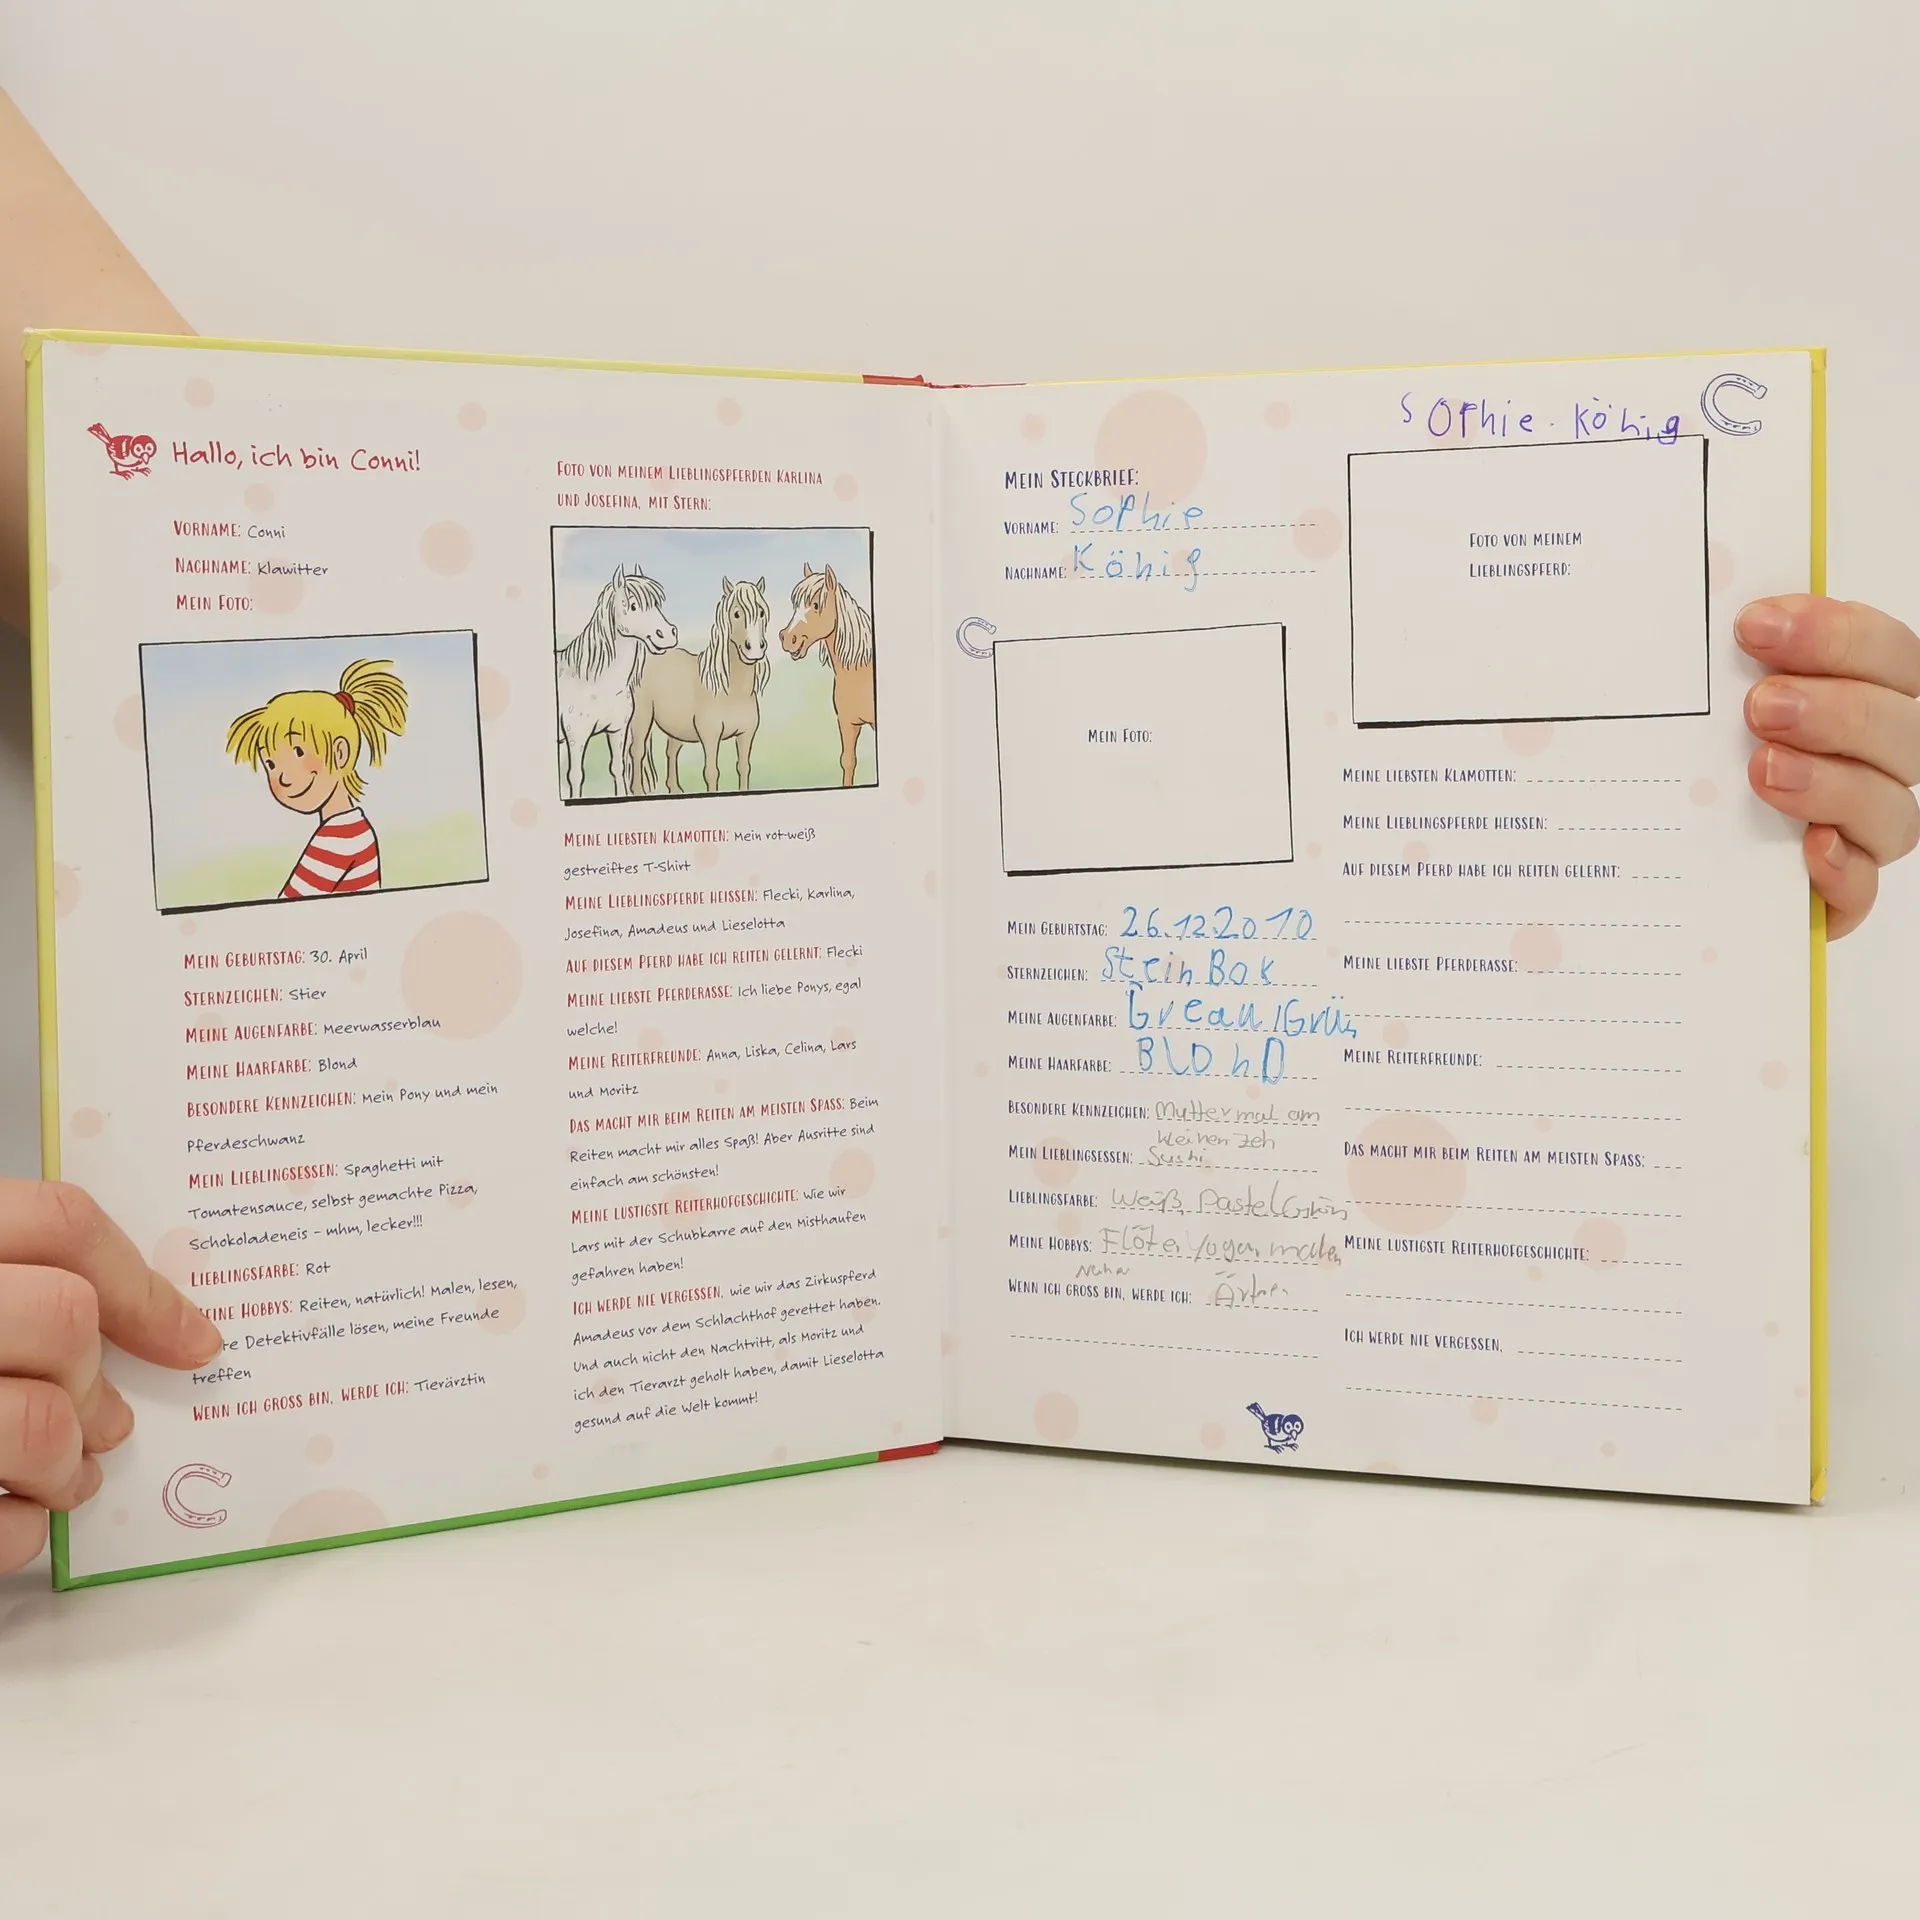 Hallo, ich bin Conni!
VORNAME: Conni
NACHNAME: Klawitter
MEIN FOTO:
MEIN GEBURTSTAG: 30. April
STERNZEICHEN: Stier
MEINE AUGENFARBE: Meerwasserblau
MEINE HAARFARBE: Blond
BESONDERE KENNZEICHEN: Mein Pony und mein
Pferdeschwanz
MEIN LIEBLINGSESSEN: Spaghetti mit
Tomatensauce, selbst gemachte Pizza,
Schokoladeneis – mhm, lecker!!!
LIEBLINGSFARBE: Rot
EINE HOBBYS: Reiten, natürlich! Malen, lesen,
te Detektivfälle lösen, meine Freunde
treffen
WENN ICH GROSS BIN, WERDE ICH: Tierärztin
FOTO VON MEINEM LIEBLINGSPFERDEN KARLINA
UND JOSEFINA, MIT STERN:
MEINE LIEBSTEN KLAMOTTEN: Mein rot-weiß
gestreiftes T-Shirt
MEINE LIEBLINGSPFERDE HEISSEN: Flecki, Karlina,
Josefina, Amadeus und Lieselotta
AUF DIESEM PFERD HABE ICH REITEN GELERNT: Flecki
MEINE LIEBSTE PFERDERASSE: Ich liebe Ponys, egal
welche!
MEINE REITERFREUNDE: Anna, Liska, Celina, Lars
und Moritz
DAS MACHT MIR BEIM REITEN AM MEISTEN SPASS: Beim
Reiten macht mir alles Spaß! Aber Ausritte sind
einfach am schönsten!
MEINE LUSTIGSTE REITERHOFGESCHICHTE: Wie wir
Lars mit der Schubkarre auf den Misthaufen
gefahren haben!
ICH WERDE NIE VERGESSEN, wie wir das Zirkuspferd
Amadeus vor dem Schlachthof gerettet haben.
Und auch nicht den Nachtritt, als Moritz und
ich den Tierarzt geholt haben, damit Lieselotta
gesund auf die Welt kommt!
MEIN STECKBRIEF:
VORNAME: Sophie
NACHNAME: Köhig
MEIN FOTO:
MEIN GEBURTSTAG: 26.12.2010
STERNZEICHEN: SteinBok
MEINE AUGENFARBE: Greau/Grün
MEINE HAARFARBE: BLOhD
BESONDERE KENNZEICHEN: Muttermal am
kleinen Zeh
MEIN LIEBLINGSESSEN: Sushi
LIEBLINGSFARBE: Weiß, Pastellgrün
MEINE HOBBYS: Flöte, Yoga, malen
WENN ICH GROSS BIN, WERDE ICH:
SOPhie. Köhig
FOTO VON MEINEM
LIEBLINGSPFERD:
MEINE LIEBSTEN KLAMOTTEN:
MEINE LIEBLINGSPFERDE HEISSEN:
AUF DIESEM PFERD HABE ICH REITEN GELERNT:
MEINE LIEBSTE PFERDERASSE:
MEINE REITERFREUNDE:
DAS MACHT MIR BEIM REITEN AM MEISTEN SPASS:
MEINE LUSTIGSTE REITERHOFGESCHICHTE:
ICH WERDE NIE VERGESSEN,